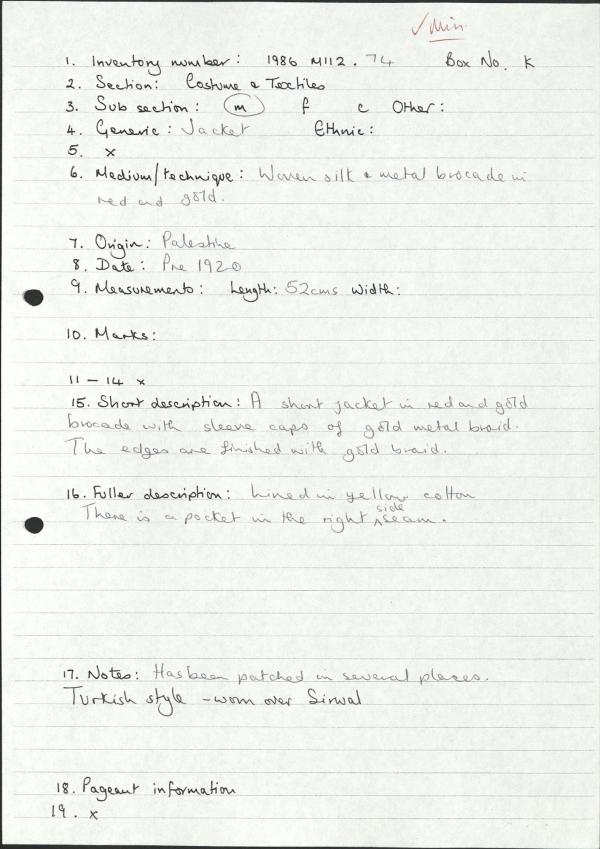 ✓ Min
1. Inventory number: 1986 M112.74 Box No. K
2. Section: Costume & Textiles
3. Sub section: m f c Other:
4. Generic: Jacket Ethnic:
5. x
6. Medium/technique: Woven silk & metal brocade in
red and gold.
7. Origin: Palestine
8. Date: Pre 1920
9. Measurements: Length: 52cms Width:
10. Marks:
11 – 14 x
15. Short description: A short jacket in red and gold
brocade with sleeve caps of gold metal braid.
The edges are finished with gold braid.
16. Fuller description: Lined in yellow cotton
There is a pocket in the right side seam.
17. Notes: Has been patched in several places.
Turkish style – worn over Sirwal
18. Pageant information
19. x